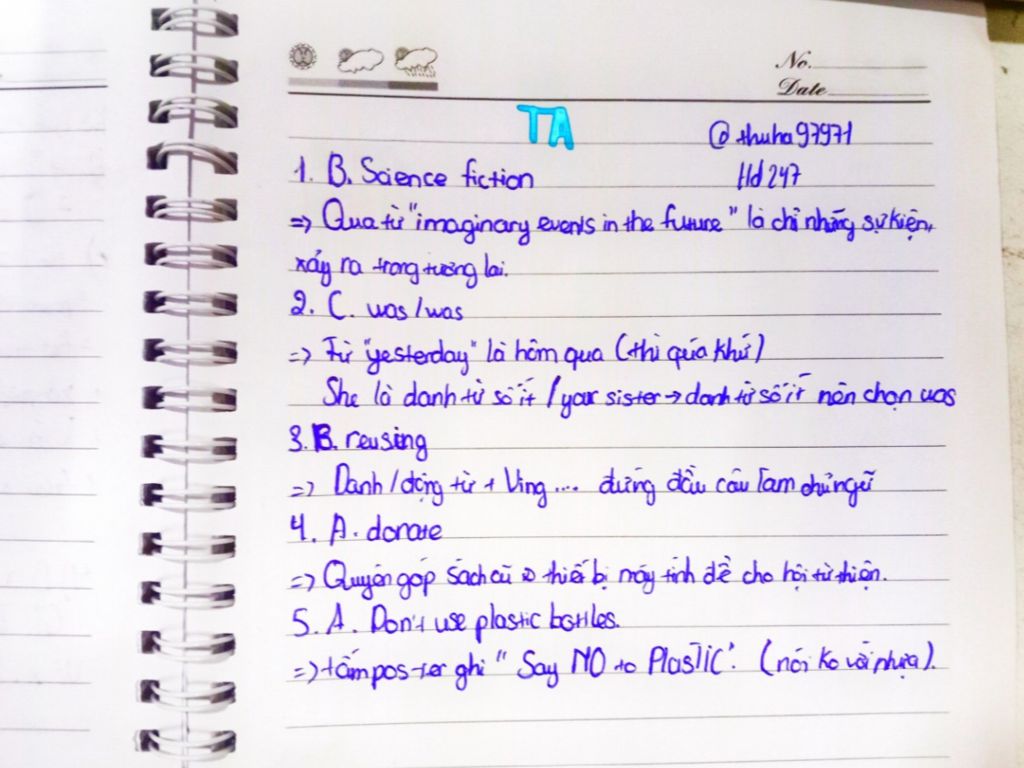 No.
Date
TA
@thuha97971
Hd247
1. B. Science fiction
=> Qua từ "imaginary events in the future" là chỉ những sự kiện,
xảy ra trong tương lai.
2. C. was/was
=> Từ "yesterday" là hôm qua (thì quá khứ)
She là danh từ số ít / your sister → danh từ số ít nên chọn was
3. B. reusing
=> Danh/động từ + Ving.... đứng đầu câu làm chủ ngữ
4. A. donate
=> Quyên góp sách cũ thiết bị máy tính để cho hội từ thiện.
5. A. Don't use plastic bottles.
=> tấm poster ghi " Say NO to PlasTiC". (nói ko với nhựa).